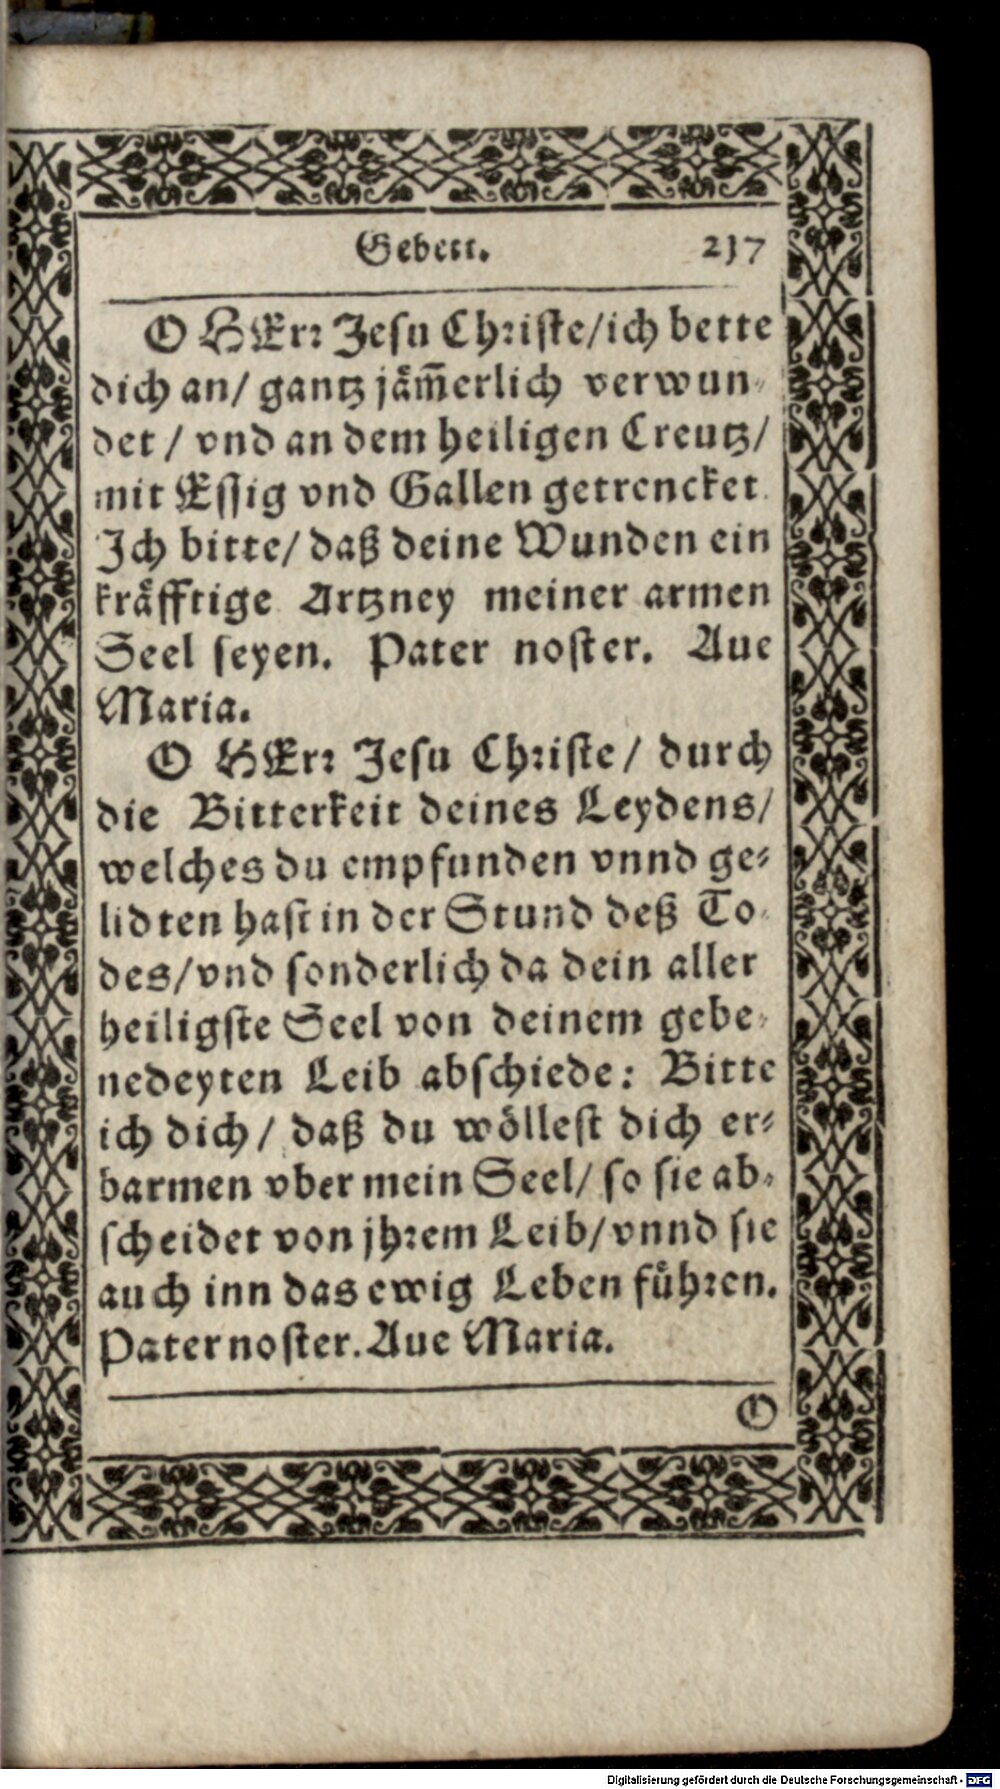 Gebett. 217
O HErꝛ Jesu Chꝛiste/ich bette
dich an/ gantz jäm̃erlich verwun-
det / vnd an dem heiligen Creutz/
mit Essig vnd Gallen getrencket.
Ich bitte/ daß deine Wunden ein
kräfftige Artzney meiner armen
Seel seyen. Pater noster. Aue
Maria.
O HErꝛ Jesu Chꝛiste/ durch
die Bitterkeit deines Leydens/
welches du empfunden vnnd ge-
lidten hast in der Stund deß To-
des/vnd sonderlich da dein aller
heiligste Seel von deinem gebe-
nedeyten Leib abschiede: Bitte
ich dich/ daß du wöllest dich er-
barmen vber mein Seel/ so sie ab-
scheidet von jhꝛem Leib/vnnd sie
auch inn das ewig Leben führen.
Pater noster. Aue Maria.
O
Digitalisierung gefördert durch die Deutsche Forschungsgemeinschaft - DFG